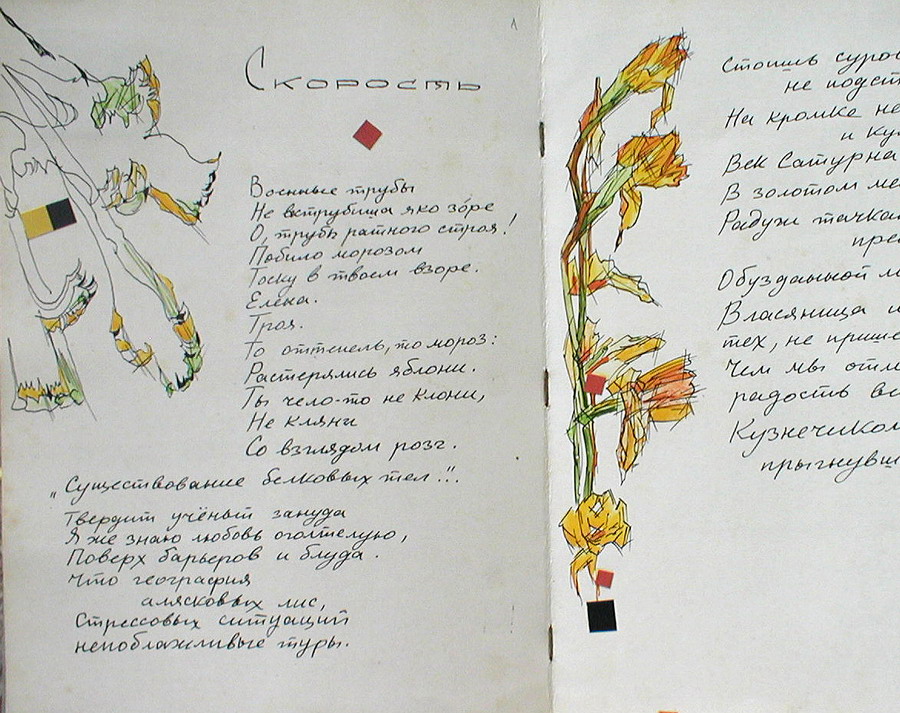 Скорость
Военные трубы
Не вструбиша яко зо́ре
О, трубы ратного строя!
Побило морозом
Тоску в твоем взоре.
Елена.
Троя.
То оттепель, то мороз:
Растерялись яблони.
Ты чело-то не клони,
Не кляни
Со взглядом розг.
"Существование белковых тел!"..
Твердит учёный зануда
Я же знаю любовь оголтелую,
Поверх барьеров и блуда.
Что география
алясковых лис,
Стрессовых ситуаций
непоблажливые туры.
Стоишь суро
не подст
На кромке не
и ку
Век Сатурна
В золотом ме
Радужн тачка
пре
Обузданной м
Власяница и
тех, не прише
Чем мы отли
радость ви
Кузнечиком
прыгнувш